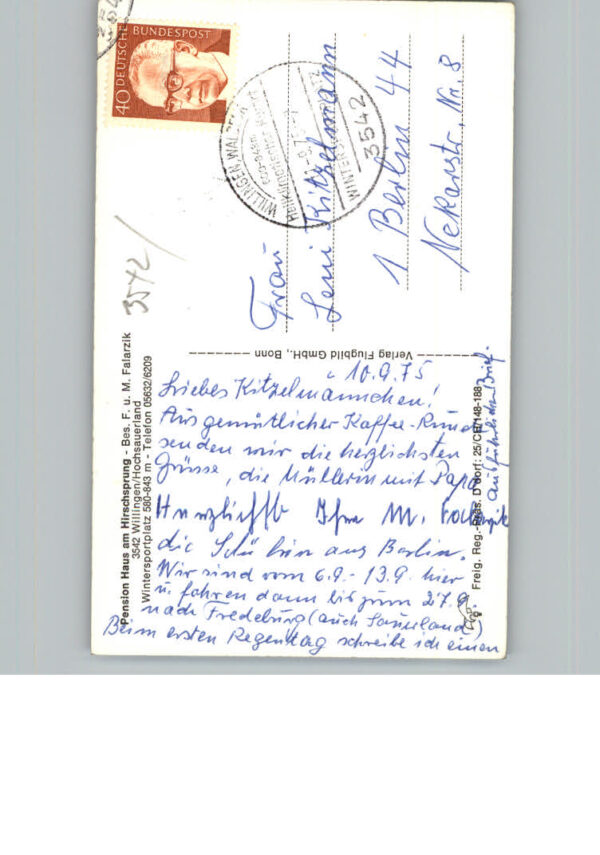 40 DEUTSCHE BUNDESPOST
WILLINGEN, WALDECK
Heilklimatischer
WINTERSPORTPLATZ
3542
3542/
Frau
Leni Kitzelmann
1 Berlin 44
Nekarstr. Nr. 8
Pension Haus am Hirschsprung - Bes. F. u. M. Falarzik
3542 Willingen/Hochsauerland
Wintersportplatz 580-843 m - Telefon 05632/6209
Verlag Flugbild GmbH., Bonn
Freig. Reg.-Präs. D'dorf: 25/CB/148-188
10.9.75
Liebes Kitzelmännchen!
Aus gemütlicher Kaffee-Runde
senden wir die herzlichsten
Grüsse, die Müllerin mit Papa
Herzlichst Ihre M. Falarzik
die aus Berlin.
Wir sind vom 6.9. - 13.9. hier
u. fahren dann bis zum 27.9.
nach Fredeburg (auch Sauerland)
Beim ersten Regentag schreibe ich einen
ausführlichen Brief.